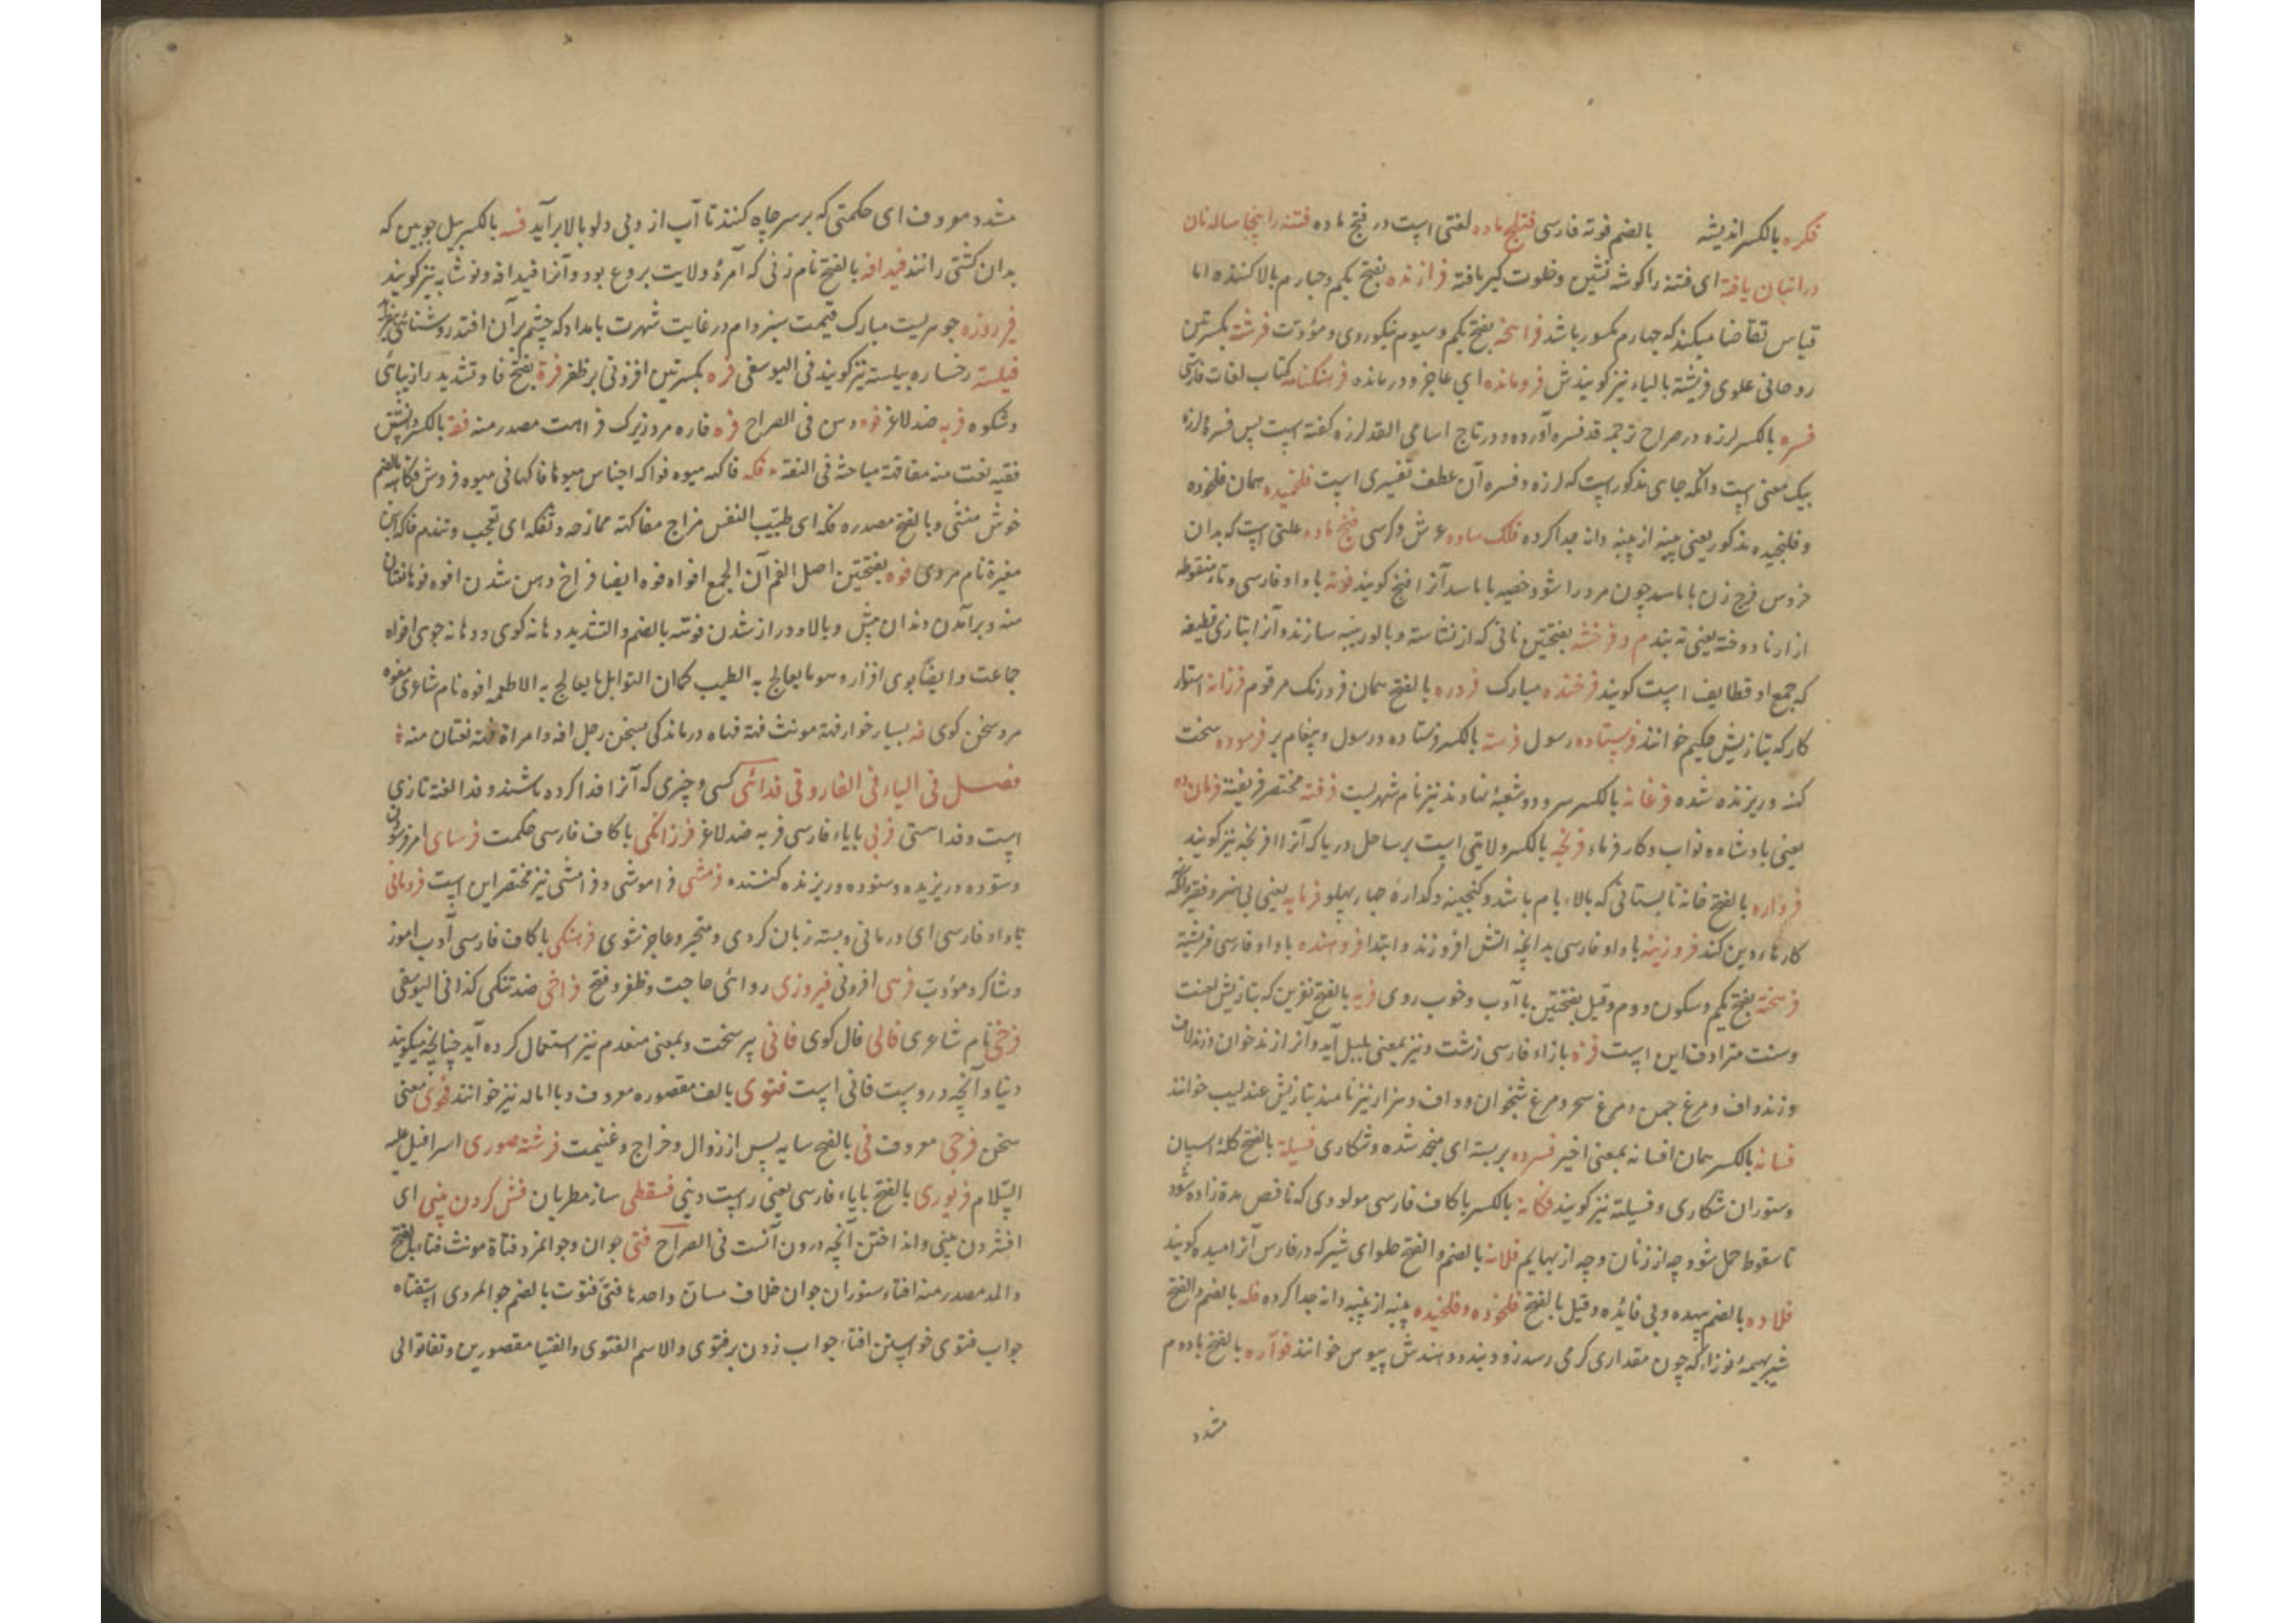 فکره بالکسر اندیشه بالضم فوته فارسی فتلج ماده لغتی است در فتج ماده فتنه را پنجا ساله نان
در انبان یافته ای فتنه را کوشه نشین و خلوت کیر یافته فرازنده بفتح یکم و چهارم بالا کننده اما
قیاس تقاضا میکند که چهارم مکسور باشد فراخته بفتح یکم و سیوم نیکوروی و مؤدت فرشته بکسرتین
روحانی علوی فریشته بالیاء نیز کویندش فرومانده ای عاجز و درمانده فرهنکنامه کتاب لغات فارسی
فسره بالکسر لرزه در صراح ترجمه قد فسره آورده و در تاج اسامی القد لرزه کفته است پس فسره و لرزه
بیک معنی است و آنکه جای مذکور است که لرزه و فسره آن عطف تفسیری است فلخمیده همان فلخوده
و فلنجیده مذکور یعنی پنبه از پنبه دانه جدا کرده فلک ساده عرش و کرسی فتج ماده علتی است که بدان
خروس فرج زن باماسد چون مرد را شود خصیه باماسد آنرا فنج کویند فوته باواو فارسی و تاء منقوطه
ازار نادوخته یعنی ته بندم و فرخشه بفتحتین نانی که از نشاسته و بالوزینه سازند و آنرا بتازی قطیفه
که جمع او قطایف است کویند فرخنده مبارک فروره بالفتح همان فرورنک مرقوم فرزانه استوار
کار که بتازیش حکیم خوانند فرستاده رسول فرسته بالکسر فرستاده و رسول و پیغام بر فرسوده سخت
کهنه و ریزنده شده فرغانه بالکسر سرود و شعبۀ نهاوند نیز نام شهریست فرفته مختصر فریفته فرمان ده
یعنی پادشاه و نواب و کارفرماء فرنجه بالکسر ولایتی است بر ساحل دریا که آنرا افرنجه نیز کویند
فرواره بالفتح خانه تابستانی که بالاء بام باشد و کنجینه و کدارۀ چهار پهلو فرمایه یعنی بی هنر و فقیر و آنکه
کارهاء دین کند فروزینه باواو فارسی بدانچه آتش افروزند و ابتدا فروهنده باواو فارسی فریشته
فرهخته بفتح یکم و سکون دوم و قیل بفتحتین با ادب و خوب روی فریه بالفتح نفرین که بتازیش لعنت
و سنت مترادف این است فزه بازاء فارسی زشت و نیز بمعنی بلبل آید و آنرا زندخوان و زندلاف
و زندواف و مرغ چمن و مرغ سحر و مرغ شبخوان و وواف و هزار نیز نامند بتازیش عندلیب خوانند
فسانه بالکسر همان افسانه بمعنی اخیر فسرده بربسته ای منجمد شده و شکاری فسیله بالفتح کلۀ اسپان
و ستوران شکاری و فسیلته نیز کویند فکانه بالکسر باکاف فارسی مولودی که ناقص مدة زاده شود
تا سقوط حمل شود چه از زنان و چه از بهایم فلانه بالضم والفتح حلوای شیر که در فارس آنرا میده کویند
فلاده بالضم بیهده و بی فائده و قیل بالفتح فلخوده و فلخیده پنبه از پنبه دانه جدا کرده فله بالضم والفتح
شیر بهیمۀ نوزاء که چون مقداری کرمی رسد زود بندد و هندش پیوس خوانند فوآره بالفتح بادوم
مشدد
مشدد معروف ای حکمتی که بر سر چاه کنند تا آب از وبی دلو بالا برآید فسه بالکسر بیل چوبین که
بدان کشتی رانند فیدافه بالفتح نام زنی که آمرۀ ولایت بروع بود و آنرا قیدافه و نوشابه نیز کویند
فیروزه جوهریست مبارک قیمت سبز دام در غایت شهرت بامداد که چشم بر آن افتد روشنائی بیفزاید
فیلسته رخساره بیلسته نیز کویند فی الیوسفی فره بکسرتین افزونی بر ظفر فرة بفتح فا و تشدید را زیبائی
و شکوه فربه ضد لاغر فره دس فی الصراح فره فاره مرد زیرک فراهت مصدر منه فقه بالکسر دانش
فقیه نعت منه مفاقهة مباحثة فی الفقه فکه فاکهه میوه فواکه اجناس میوها فاکهانی میوه فروش فکاهة بالضم
خوش منشی و بالفتح مصدره فکه ای طیب النفس مزاج مفاکهة ممازحه و تفکه ای تعجب و تندم فاکه ابن
مغیرة نام مردی فوه بفتحتین اصل الفم آن الجمع افواه فوه ایضا فراخ دهن شدن افوه فوها نعتان
منه و برآمدن دندان پیش و بالا و دراز شدن فوته بالضم والتشدید دهانه کوی و دهانه جوی افواه
جماعت و ایضا بوی افزار و هو ما یعالج به الطیب کمان التوابل ما یعالج به الاطعمه افوه نام شاعری مفوه
مرد سخن کوی فه بسیار خوار فهة مونث فهة فهاه درماندکی بسخن رجل افه وامراة فهه نعتان منه
فصل فی الیاء فی الفاروقی فدائی کسی و چیزی که آنرا فدا کرده باشند و فدا لغة تازی
است و فدا ستی فربی بابای فارسی فربه ضد لاغر فرزانکی باکاف فارسی حکمت فرسای امر فرسودن
و ستوده و ریزیده و ستوده و ریزنده کننده فرمشی فراموشی و فرامشی نیز مختصر این است فرومانی
باواو فارسی ای درمانی و بسته زبان کردی و متحیر و عاجز شوی فرهنکی باکاف فارسی ادب آموز
و شاکرد مؤدب فرهی افزونی فیروزی روائی حاجت و ظفر و فتح فراخی ضد تنکی کذا فی الیوسفی
فرخی نام شاعری فالی فال کوی فانی پیر سخت و بمعنی منعدم نیز استعمال کرده آید چنانچه میکویند
دنیا و آنچه دروست فانی است فتوی بالف مقصوره معروف و باماله نیز خوانند فحوی معنی
سخن فرجی معروف فی بالفتح سایه پس از زوال و خراج و غنیمت فرشته صوری اسرافیل علیه
السلام فریوری بالفتح بایاء فارسی یعنی راست دینی فسقطی ساز مطربان فش کردن بینی ای
افشردن بینی و انداختن آنچه درون آنست فی الصراح فتی جوان و جوانمرد فتاة مونث فتاء بالفتح
والمد مصدر منه افتاء ستوران جوان خلاف مسان واحدها فتی فتوت بالضم جوانمردی استفتاء
جواب فتوی خواستن افتاء جواب زدن بر فتوی والاسم الفتوی والفتیا مقصورین و تفاتوا الی